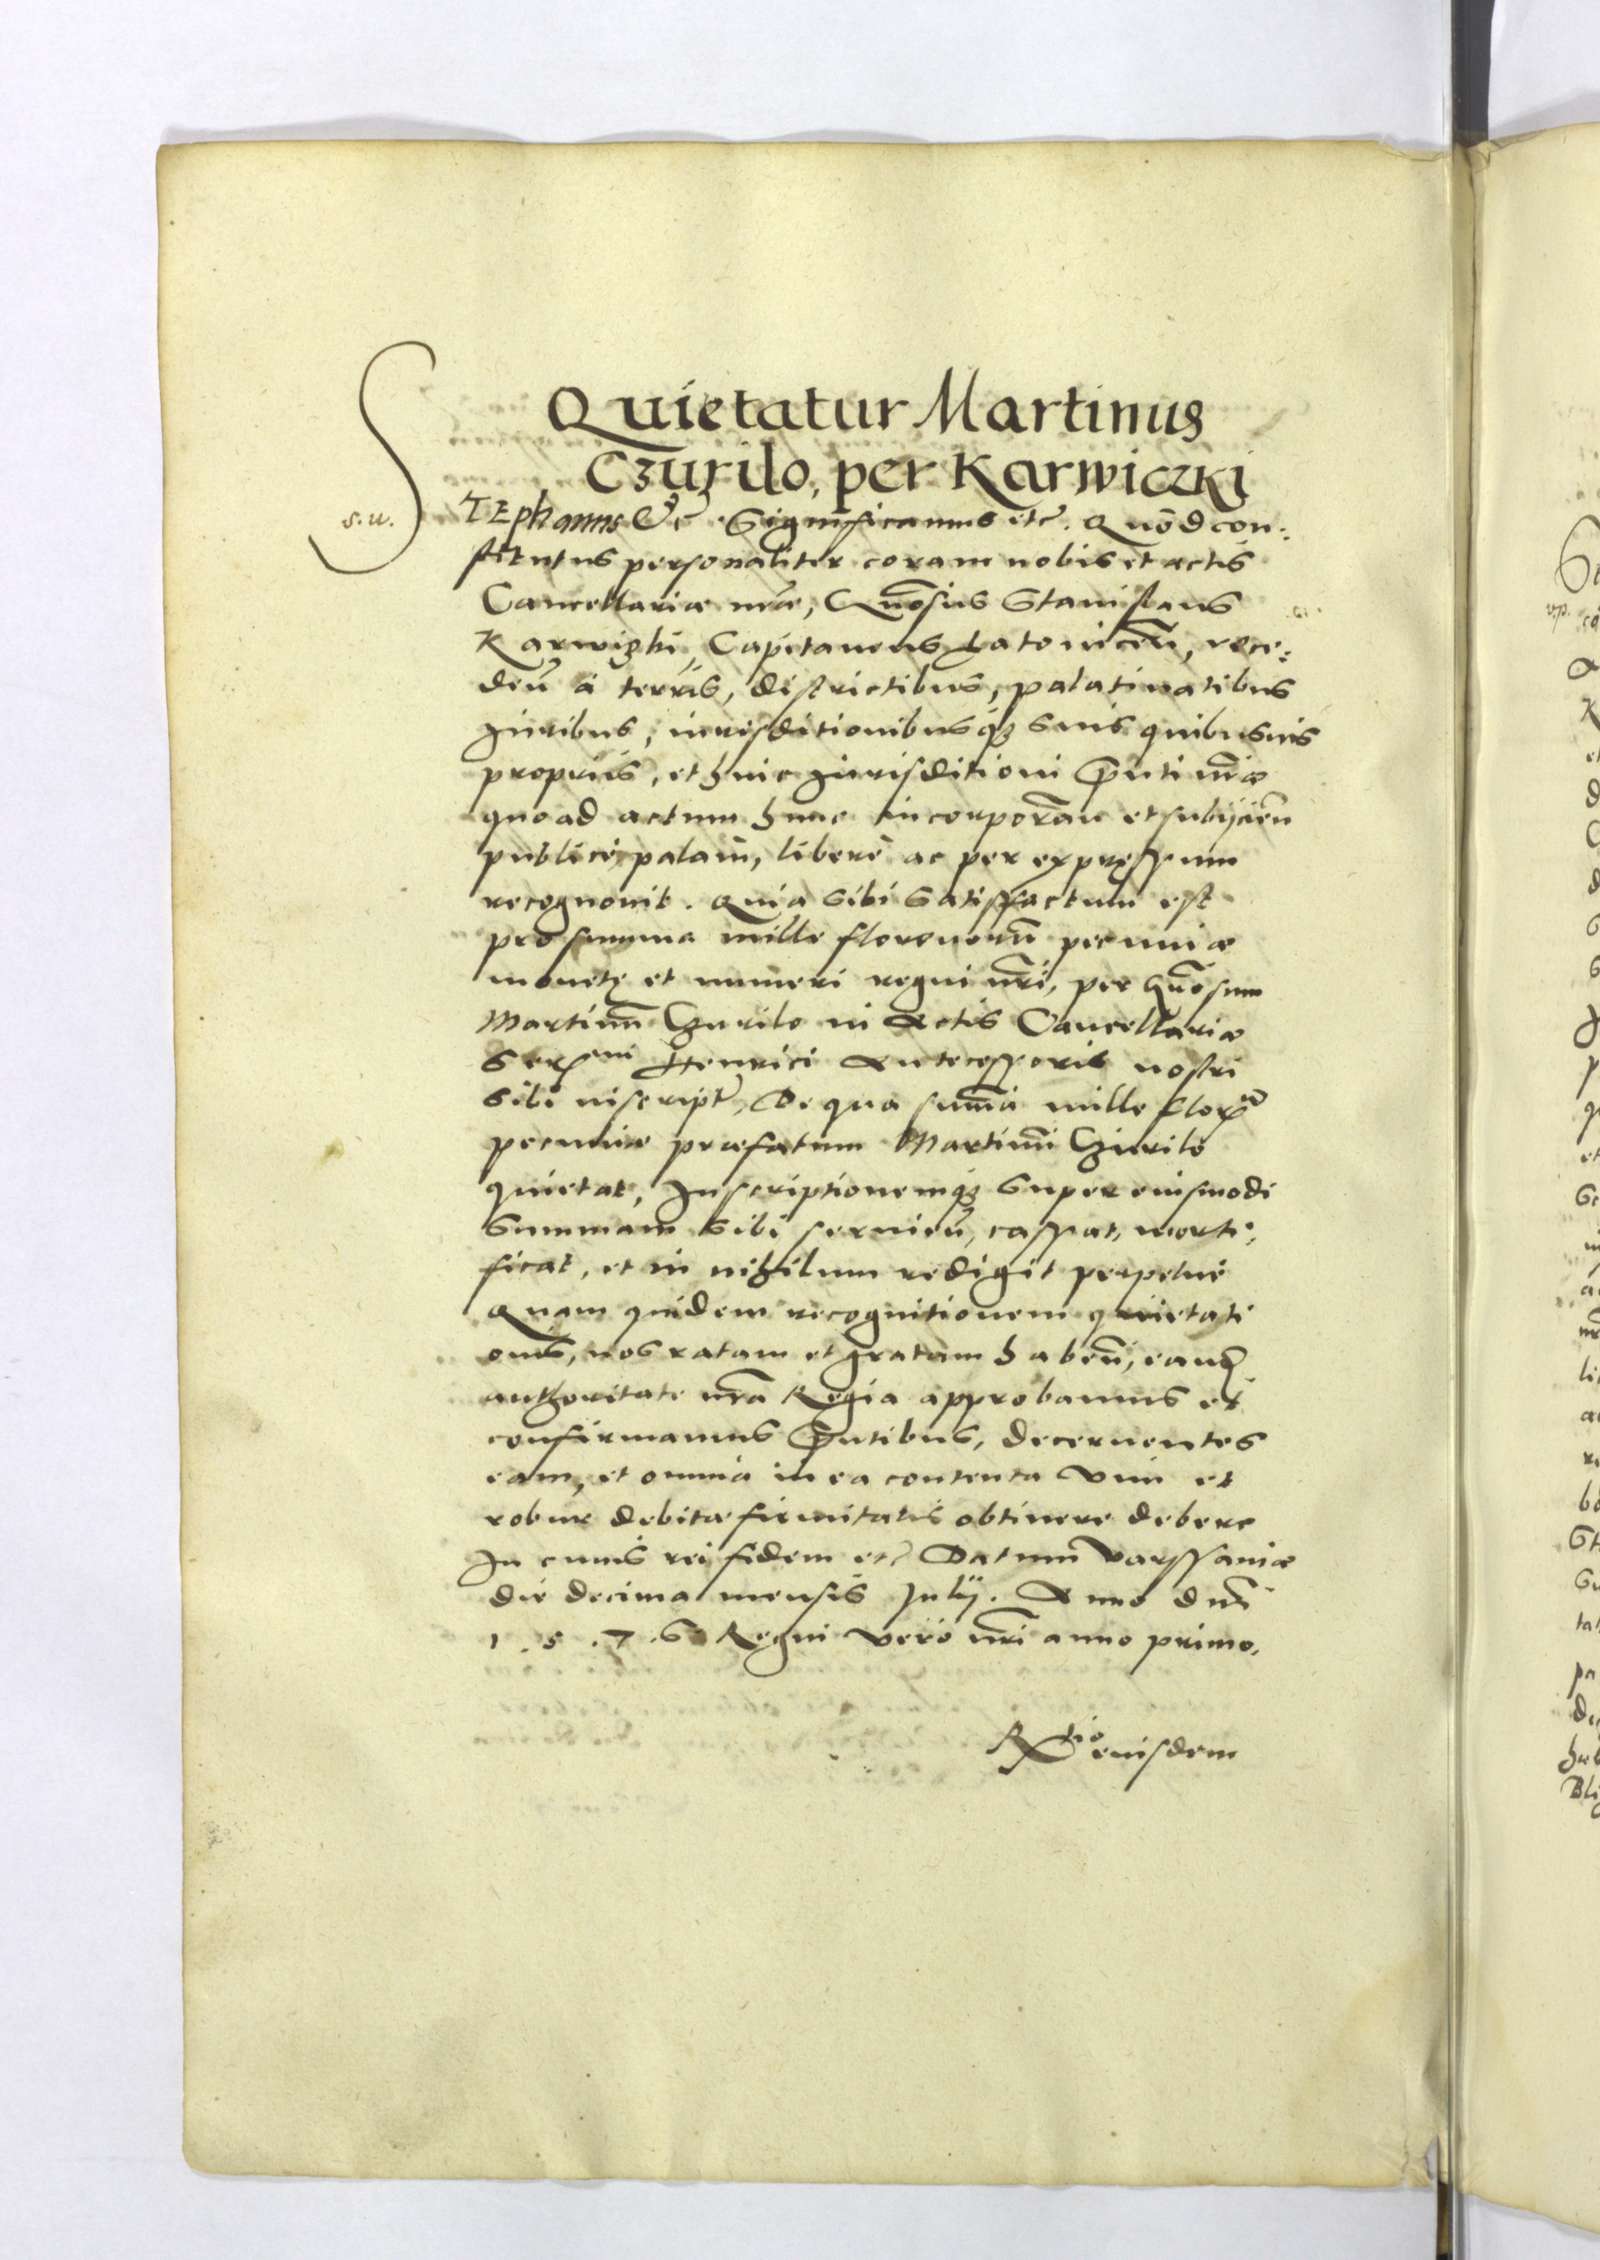 Quietatur Martinus
Czurilo, per Karwiczki
s.w.
STEphanus &c̃ Significamus etc̃. Quod con:
stitutus personaliter coram nobis et actis
Cancellariæ nr̃æ, Gn̄osus Stanislaus
Karwizki, Capitaneus Latowicen̄, rece:
den̄ à terris, districtibus, palatinatibus
Juribus, iurisditionibusq́ꝫ suis quibusuis
proprijs, et huic Jurisditioni Pn̄ti nr̃æ
quoad actum hunc incorporan̄ et subijcien̄
publicè, palam, liberè ac per expręssum
recognouit. Quia sibi satisfactum est
pro summa mille florenorū pecuniæ
monetę et numeri regni nr̃i, per Gn̄osum
Martinū Czurilo in Actis Cancellariæ
Serᵐⁱ Henrici Antecessoris nostri
sibi inscript̃, De qua sum̄a mille flor
pecuniæ præfatum Martinū Czurilo
quietat, Inscriptionemq́ꝫ super eiusmodi
summam sibi seruien̄, cassat, morti:
ficat, et in nihilum redigit perpetuè
Quam quidem recognitionem quietati
onis, nos ratam et gratam haben̄, eanq̃
authoritate nr̃a Regia approbamus et
confirmamus Pn̄tibus, decernentes
eam, et omnia in ea contenta vim et
robur debitæ firmitatis obtinere debere
In cuius rei fidem etc̃ Datum Varssauiæ
die decima mensis Julij. Anno Dn̄i
1.5.7.6 Regni vero nr̃i anno primo.
Rᵗⁱᵒ eiusdem